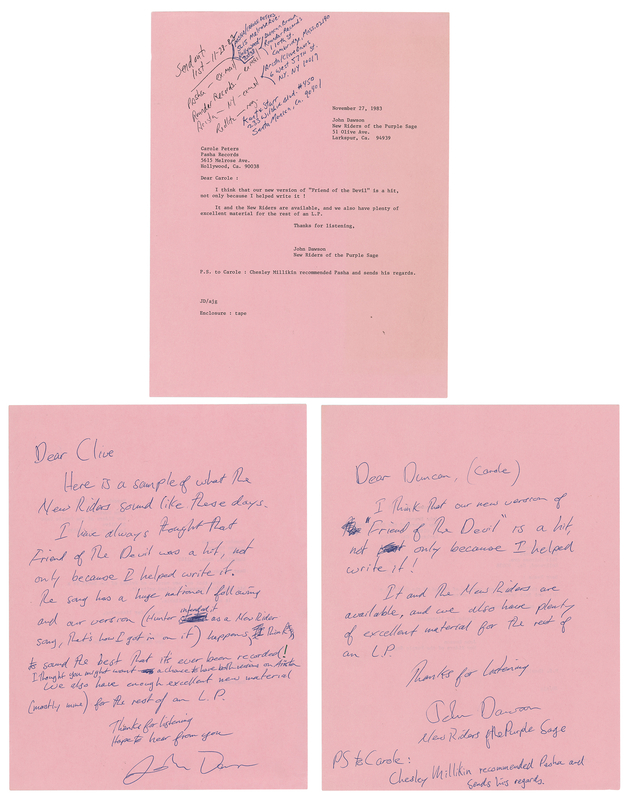 Send out
list - 11-28-83
Pasha - ex. mail
Rounder Records - ex mail
Arista - NY - ex mail
Pasha/Carole Peters
5615 Melrose Ave.
Duncan Brown
Rounder Records
1 Camp St.
Cambridge, Mass. 02140
Arista/Clive Davis
6 West 57th St.
N.Y. NY 10019
233 Wilshire Blvd. #450
Santa Monica, Ca. 90401
November 27, 1983
John Dawson
New Riders of the Purple Sage
51 Olive Ave.
Larkspur, Ca. 94939
Carole Peters
Pasha Records
5615 Melrose Ave.
Hollywood, Ca. 90038
Dear Carole :
I think that our new version of "Friend of the Devil" is a hit,
not only because I helped write it !
It and the New Riders are available, and we also have plenty of
excellent material for the rest of an L.P.
Thanks for listening,
John Dawson
New Riders of the Purple Sage
P.S. to Carole : Chesley Millikin recommended Pasha and sends his regards.
JD/ajg
Enclosure : tape
Dear Clive
Here is a sample of what the
New Riders sound like these days.
I have always thought that
Friend of The Devil was a hit, not
only because I helped write it.
The song has a huge national following
and our version (Hunter intended it as a New Rider
song, that's how I got in on it) happens, I think,
to sound the best that it's ever been recorded!
I thought you might want a chance to have both versions on Arista
We also have enough excellent new material
(mostly mine) for the rest of an L.P.
Thanks for listening
Hope to hear from you
John Dawson
Dear Duncan, (Carole)
I think that our new version of
"Friend of The Devil" is a hit,
not only because I helped
write it!
It and the New Riders are
available, and we also have plenty
of excellent material for the rest of
an L.P.
Thanks for listening
John Dawson
New Riders of the Purple Sage
PS to Carole:
Chesley Millikin recommended Pasha and
sends his regards.